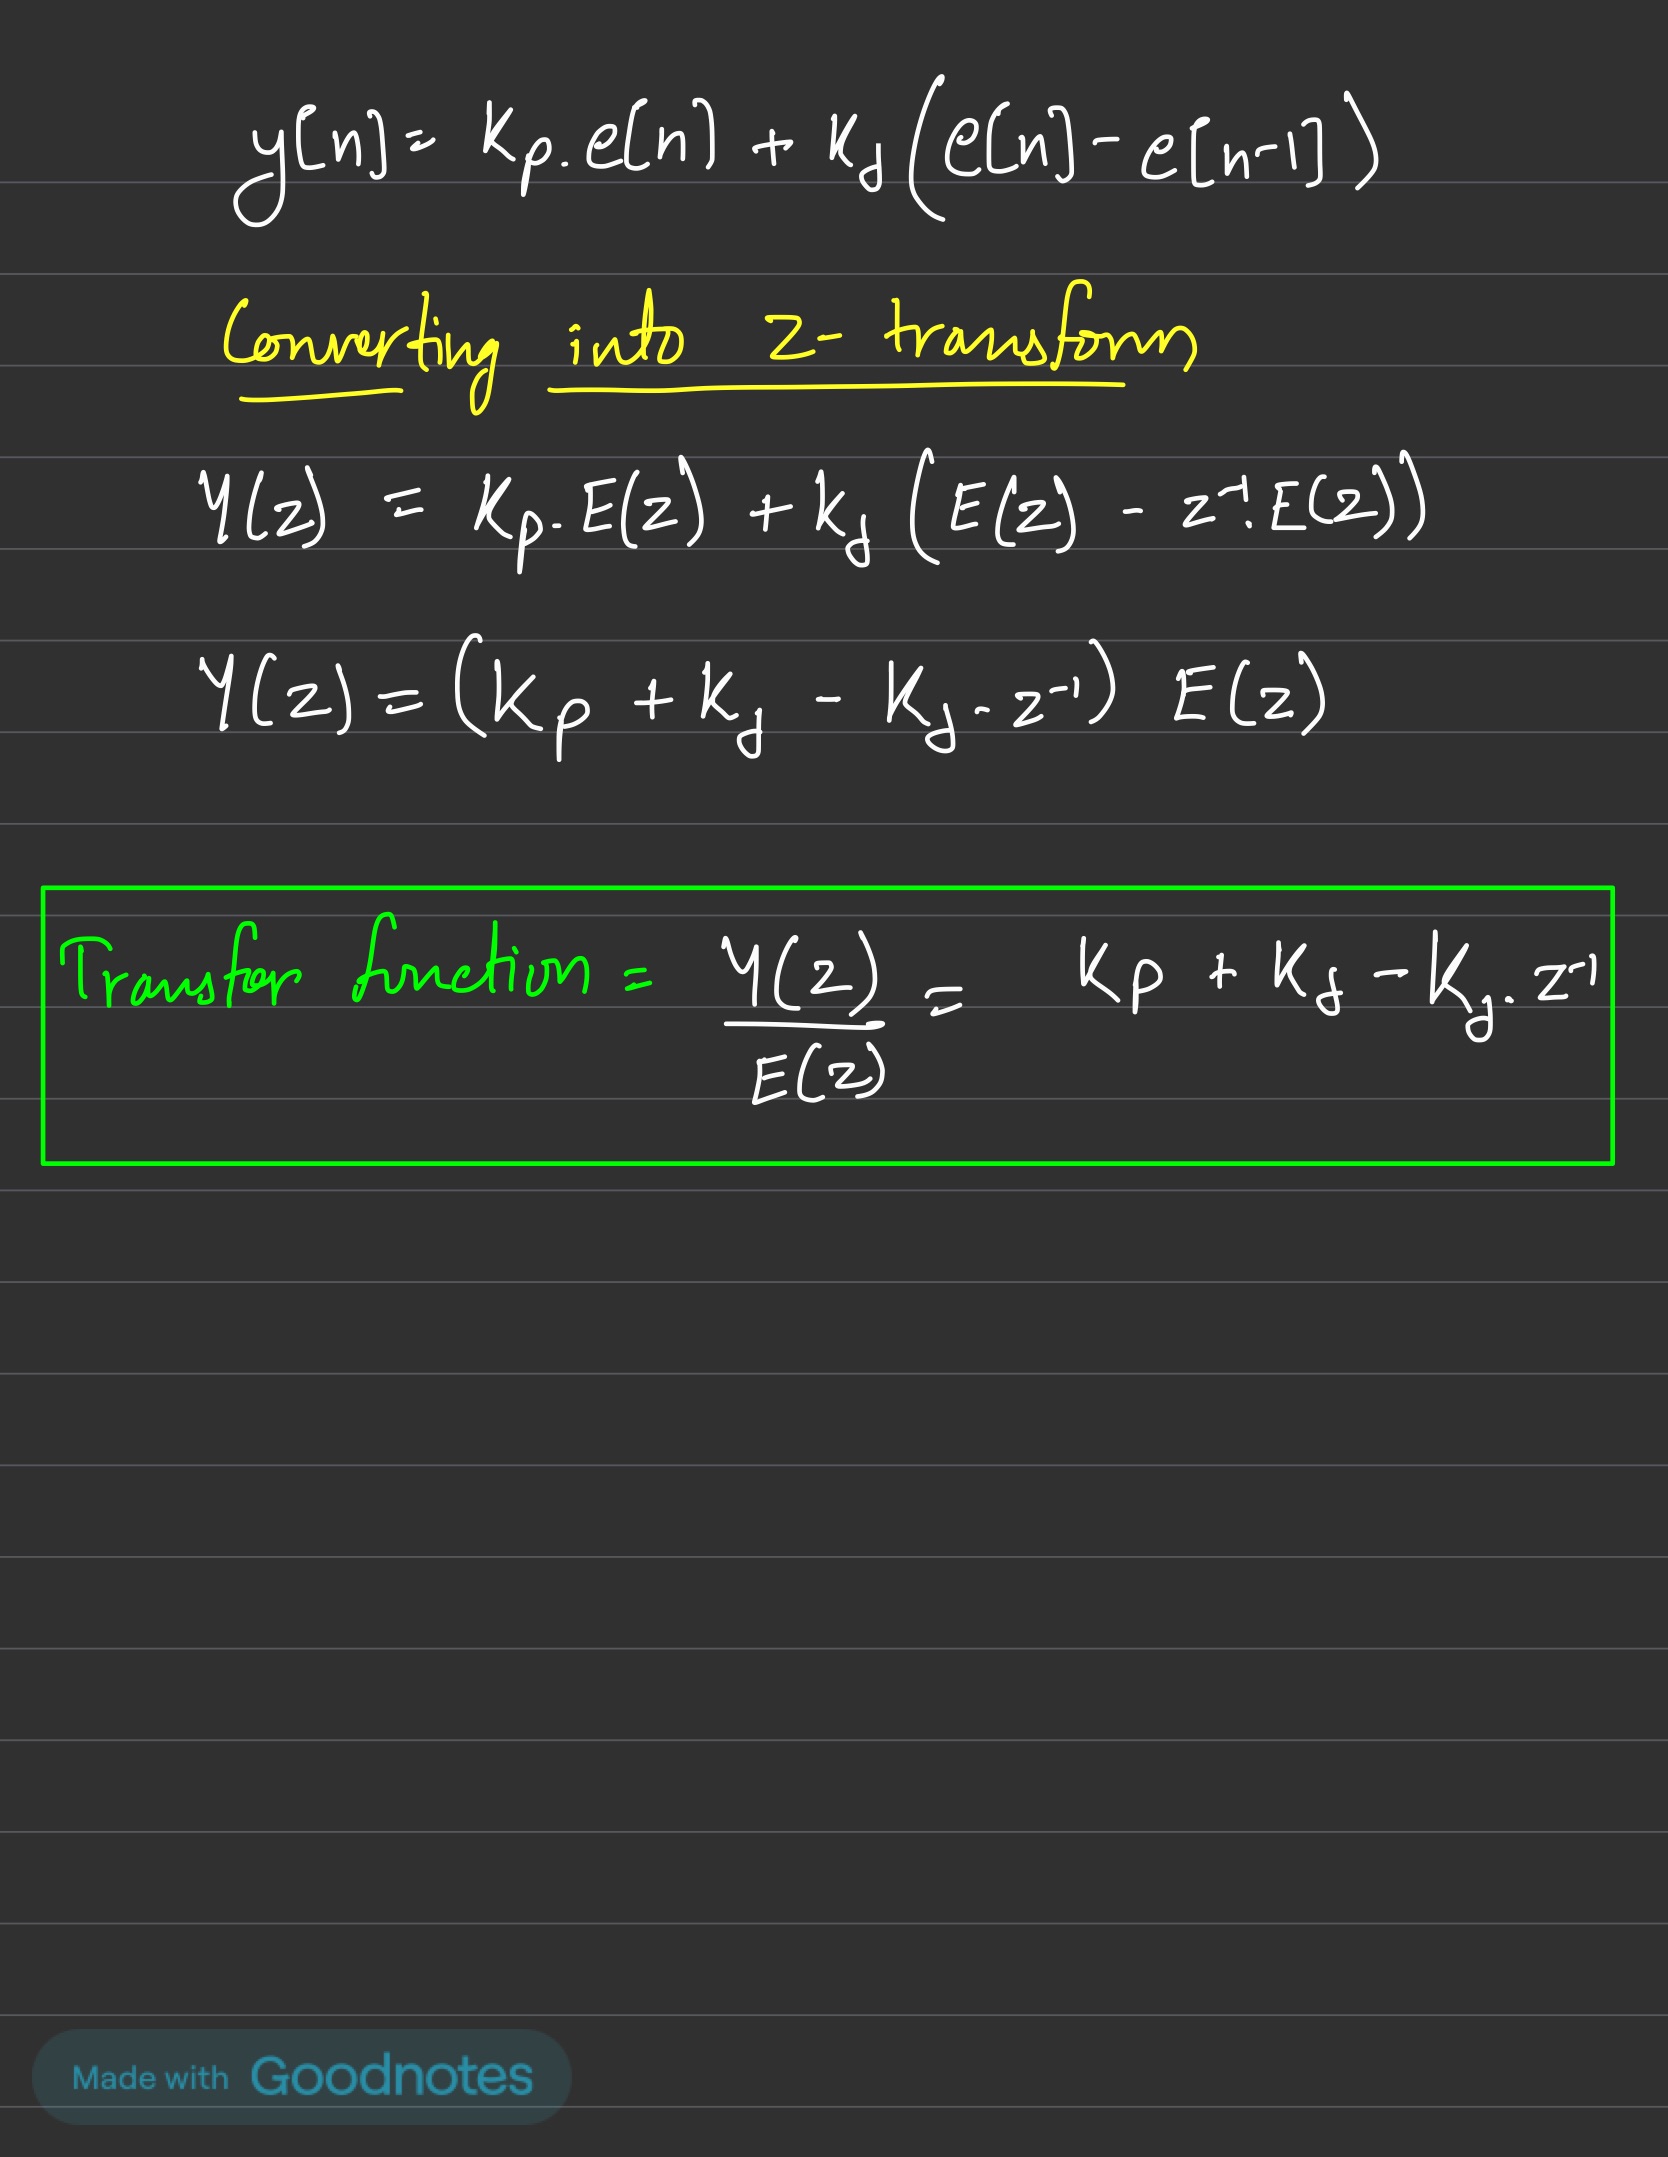 y[n] = Kp. e[n] + Kd (e[n] - e[n-1])
Converting into z- transform
Y(z) = Kp. E(z) + Kd (E(z) - z⁻¹. E(z))
Y(z) = (Kp + Kd - Kd. z⁻¹) E(z)
Transfer function = Y(z)/E(z) = Kp + Kd - Kd. z⁻¹
Made with Goodnotes